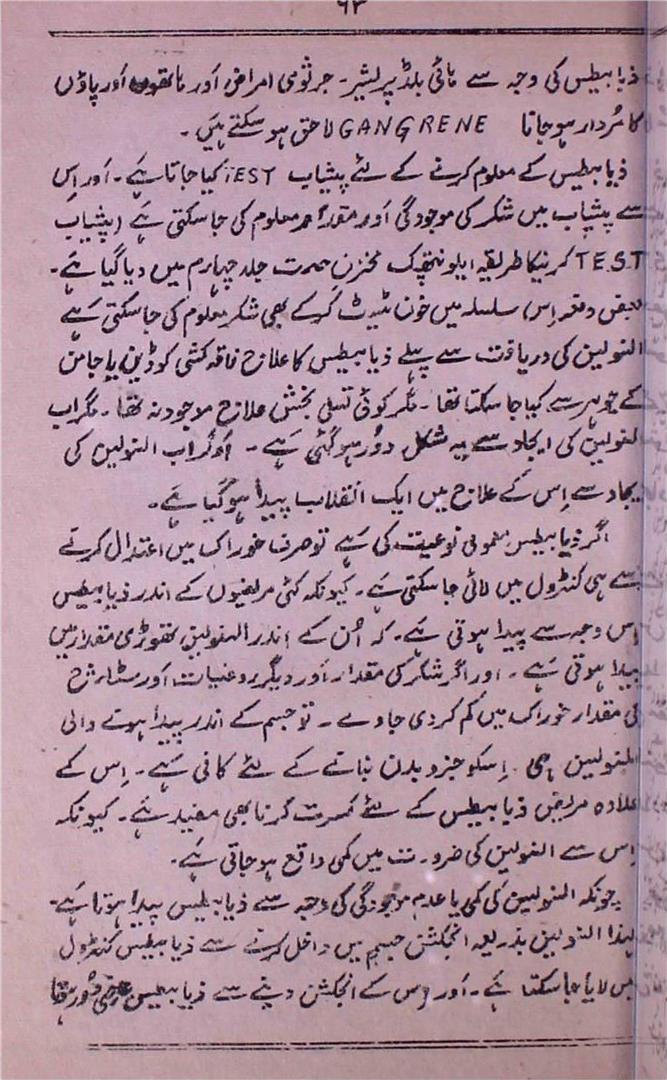 ۶۳
ذیابیطس کی وجہ سے ہائی بلڈ پریشر۔ جرثومی امراض اور ہاتھوں اور پاؤں
کا مُردار ہو جانا GANGRENE لاحق ہو سکتے ہیں۔
ذیابیطس کے معلوم کرنے کے لئے پیشاب TEST کیا جاتا ہے۔ اور اِس
سے پیشاب میں شکر کی موجودگی اور مقدار معلوم کی جا سکتی ہے (پیشاب
TEST کرنیکا طریقہ ایلوپیتھک مخزن حصرت جلد چہارم میں دیا گیا ہے۔
بعض دفعہ اِس سلسلہ میں خون ٹیسٹ کر کے بھی شکر معلوم کی جا سکتی ہے
انسولین کی دریافت سے پہلے ذیابیطس کا علاج فاقہ کشی کوڈین یا جامن
کے جوہر سے کیا جا سکتا تھا۔ مگر کوئی تسلی بخش علاج موجود نہ تھا۔ مگر اب
انسولین کی ایجاد سے یہ مشکل دُور ہو گئی ہے۔ اور اب انسولین کی
ایجاد سے اِس کے علاج میں ایک انقلاب پیدا ہو گیا ہے۔
اگر ذیابیطس معمولی نوعیت کی ہے تو صرف خوراک میں اعتدال کرنے
سے ہی کنٹرول میں لائی جا سکتی ہے۔ کیونکہ کئی مریضوں کے اندر ذیابیطس
اِس وجہ سے پیدا ہوتی ہے۔ کہ اُن کے اندر انسولین تھوڑی مقدار میں
پیدا ہوتی ہے۔ اور اگر شکر کی مقدار اور دیگر روغنیات اور سٹارچ
کی مقدار خوراک میں کم کر دی جاوے۔ تو جسم کے اندر پیدا ہونے والی
انسولین ہی اِسکو جزو بدن بنانے کے لئے کافی ہے۔ اِس کے
علاوہ مریض ذیابیطس کے لئے کسرت کرنا بھی مفید ہے۔ کیونکہ
اِس سے انسولین کی ضرورت میں کمی واقع ہو جاتی ہے۔
چونکہ انسولین کی کمی یا عدم موجودگی کی وجہ سے ذیابیطیس پیدا ہوتا ہے۔
لہذا انسولین بذریعہ انجکشن جسم میں داخل کرنے سے ذیابیطس کنٹرول
میں لایا جا سکتا ہے۔ اور اِس کے انجکشن دینے سے ذیابیطس عارضی دُور